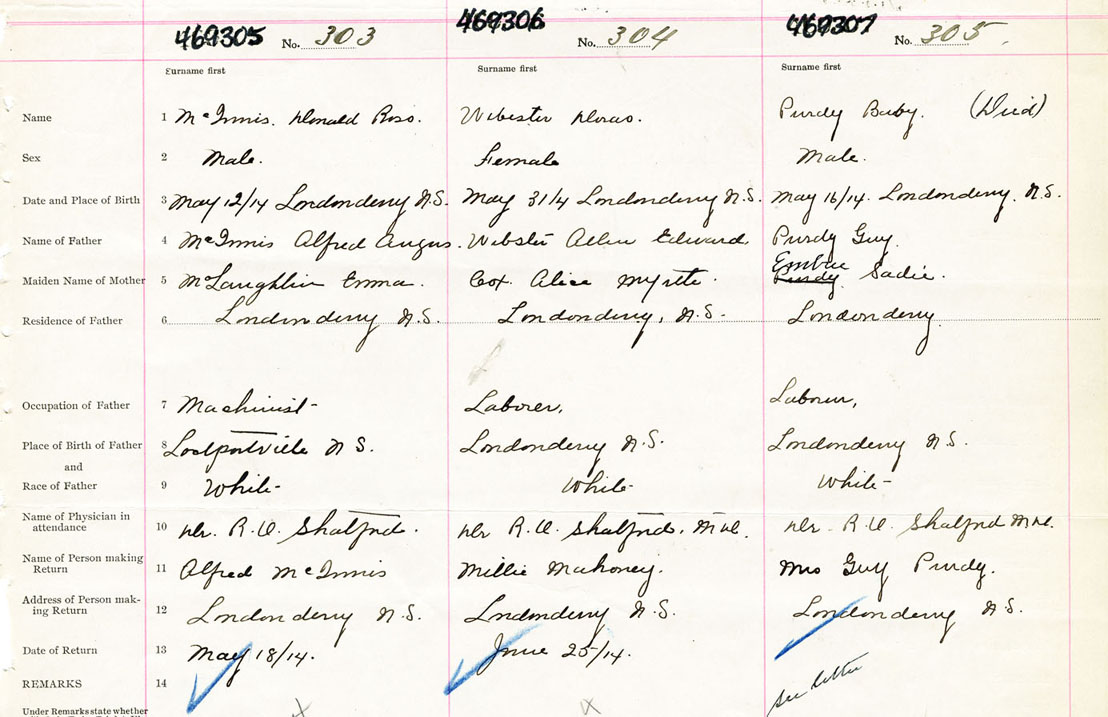 469305 No. 303 469306 No. 304 469307 No. 305.
Surname first Surname first Surname first
Name 1 McInnis. Donald Ross. Webster Doras. Purdy Baby. (Died)
Sex 2 Male. Female Male.
Date and Place of Birth 3 May 12/14 Londonderry N.S. May 31/14 Londonderry N.S. May 16/14. Londonderry. N.S.
Name of Father 4 McInnis Alfred Angus. Webster Allen Edward. Purdy Guy.
Maiden Name of Mother 5 McLaughlin Emma. Cox. Alice Myrtle. Purdy Sadie.
Residence of Father 6 Londonderry N.S. Londonderry, N.S. Londonderry
Occupation of Father 7 Machinist- Laborer, Laborer,
Place of Birth of Father 8 N.S. Londonderry N.S. Londonderry N.S.
and
Race of Father 9 White- White- White-
Name of Physician in
attendance 10 Dr. R.U. Shatford. Dr R.U. Shatford. Dr. R.U. Shatford
Name of Person making
Return 11 Alfred McInnis Millie Mahoney. Mrs Guy Purdy.
Address of Person mak-
ing Return 12 Londonderry N.S. Londonderry N.S. Londonderry N.S.
Date of Return 13 May 18/14. June 25/14.
REMARKS 14 See letter
Under Remarks state whether